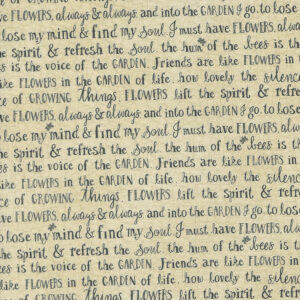 ce of GROWING things. FLOWERS lift the Spirit & re
FLOWERS, always & always and into the GARDEN I go, to lose
lose my mind & find my Soul. I must have FLOWERS, alwa
the Spirit & refresh the Soul. the hum of the bees is th
es is the voice of the GARDEN. Friends are like FLOWERS in
like FLOWERS in the GARDEN of life. how lovely the silenc
ce of GROWING things. FLOWERS lift the Spirit & refre
ave FLOWERS, always & always and into the GARDEN I go, to los
to lose my mind & find my Soul I must have FLOWERS, alwa
the Spirit & refresh the Soul. the hum of the bees is th
es is the voice of the GARDEN. Friends are like FLOWERS in
like FLOWERS in the GARDEN of life. how lovely the silenc
ce of GROWING things. FLOWERS lift the Spirit & refre
ave FLOWERS, always & always and into the GARDEN I go, to los
to lose my mind & find my Soul I must have FLOWERS, al
the Spirit & refresh the Soul. the hum of the bees is t
es is the voice of the GARDEN. Friends are like FLOWERS in
like FLOWERS in the GARDEN of life. how lovely the silen
ce of GROWING things. FLOWERS lift the Spirit & refr